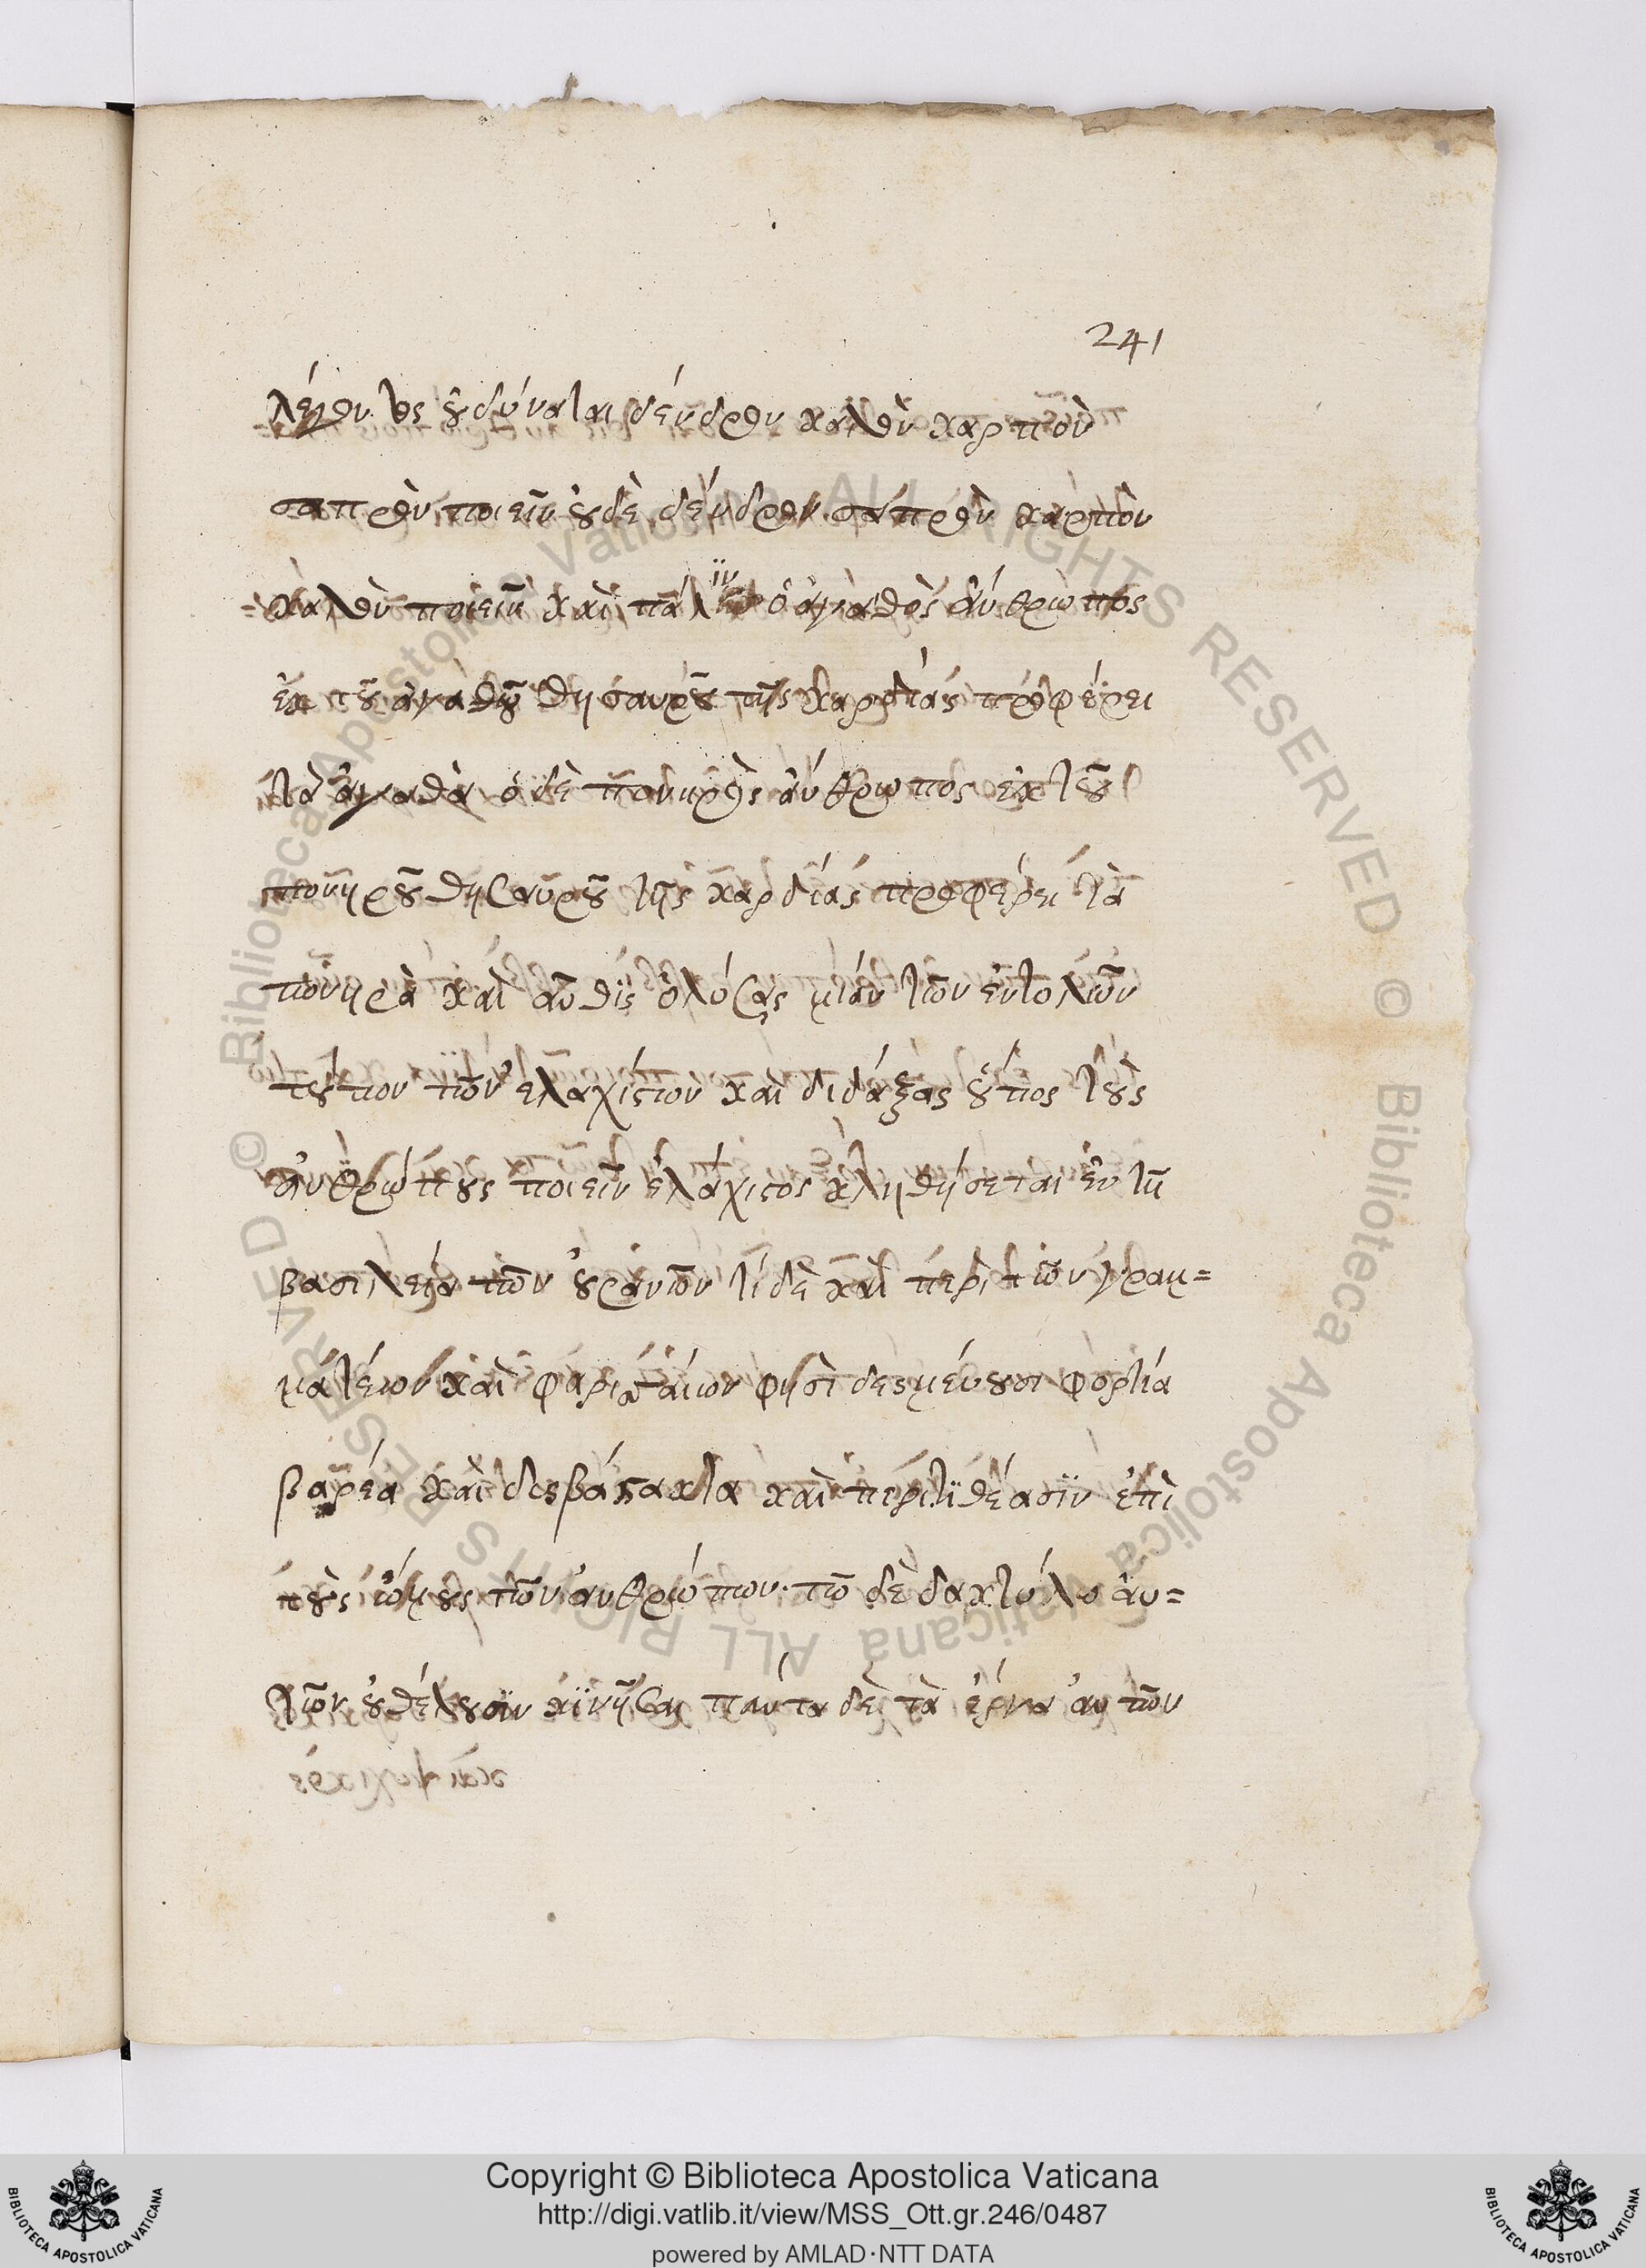 241
λέγοντος οὐ δύναται δένδρον καλὸν καρπὸν
σαπρὸν ποιεῖν οὐδὲ δένδρον σαπρὸν καρπὸν
καλὸν ποιεῖν καὶ πάλϊν ὁ ἀγαθὸς ἄνθρωπος
ἐκ τοῦ ἀγαθοῦ θησαυροῦ τῆς καρδίας προφέρει
τὰ ἀγαθὰ ὁ δὲ πονηρὸς ἄνθρωπος ἐκ τοῦ
πονηροῦ θησαυροῦ τῆς καρδίας προφέρει τὰ
πονηρὰ καὶ αὖθϊς ὁ λύσας μίαν τῶν ἐντολῶν
τούτων τῶν ἐλαχίστων καὶ διδάξας οὕτως τοὺς
ἀνθρώπους ποιεῖν ἐλάχιστος κληθήσεται ἐν τῆ
βασιλεία τῶν οὐρανῶν τί δὲ καὶ περὶ τῶν γραμ=
ματέων καὶ φαρισαίων φησὶ δεσμεύουσι φορτία
βαρέα καὶ δυσβάστακτα καὶ περιτϊθέασϊν ἐπὶ
τοὺς ὤμους τῶν ἀνθρώπων· τῶ δὲ δακτύλω αὐ=
τῶν οὐ θέλουσϊν κϊνῆσαι πάντα δὲ τὰ ἔργα αὐτῶν
Copyright © Biblioteca Apostolica Vaticana
http://digi.vatlib.it/view/MSS_Ott.gr.246/0487
powered by AMLAD·NTT DATA
BIBLIOTECA APOSTOLICA VATICANA
BIBLIOTECA APOSTOLICA VATICANA
© Biblioteca Apostolica Vaticana ALL RIGHTS RESERVED © Biblioteca Apostolica Vaticana ALL RIGHTS RESERVED